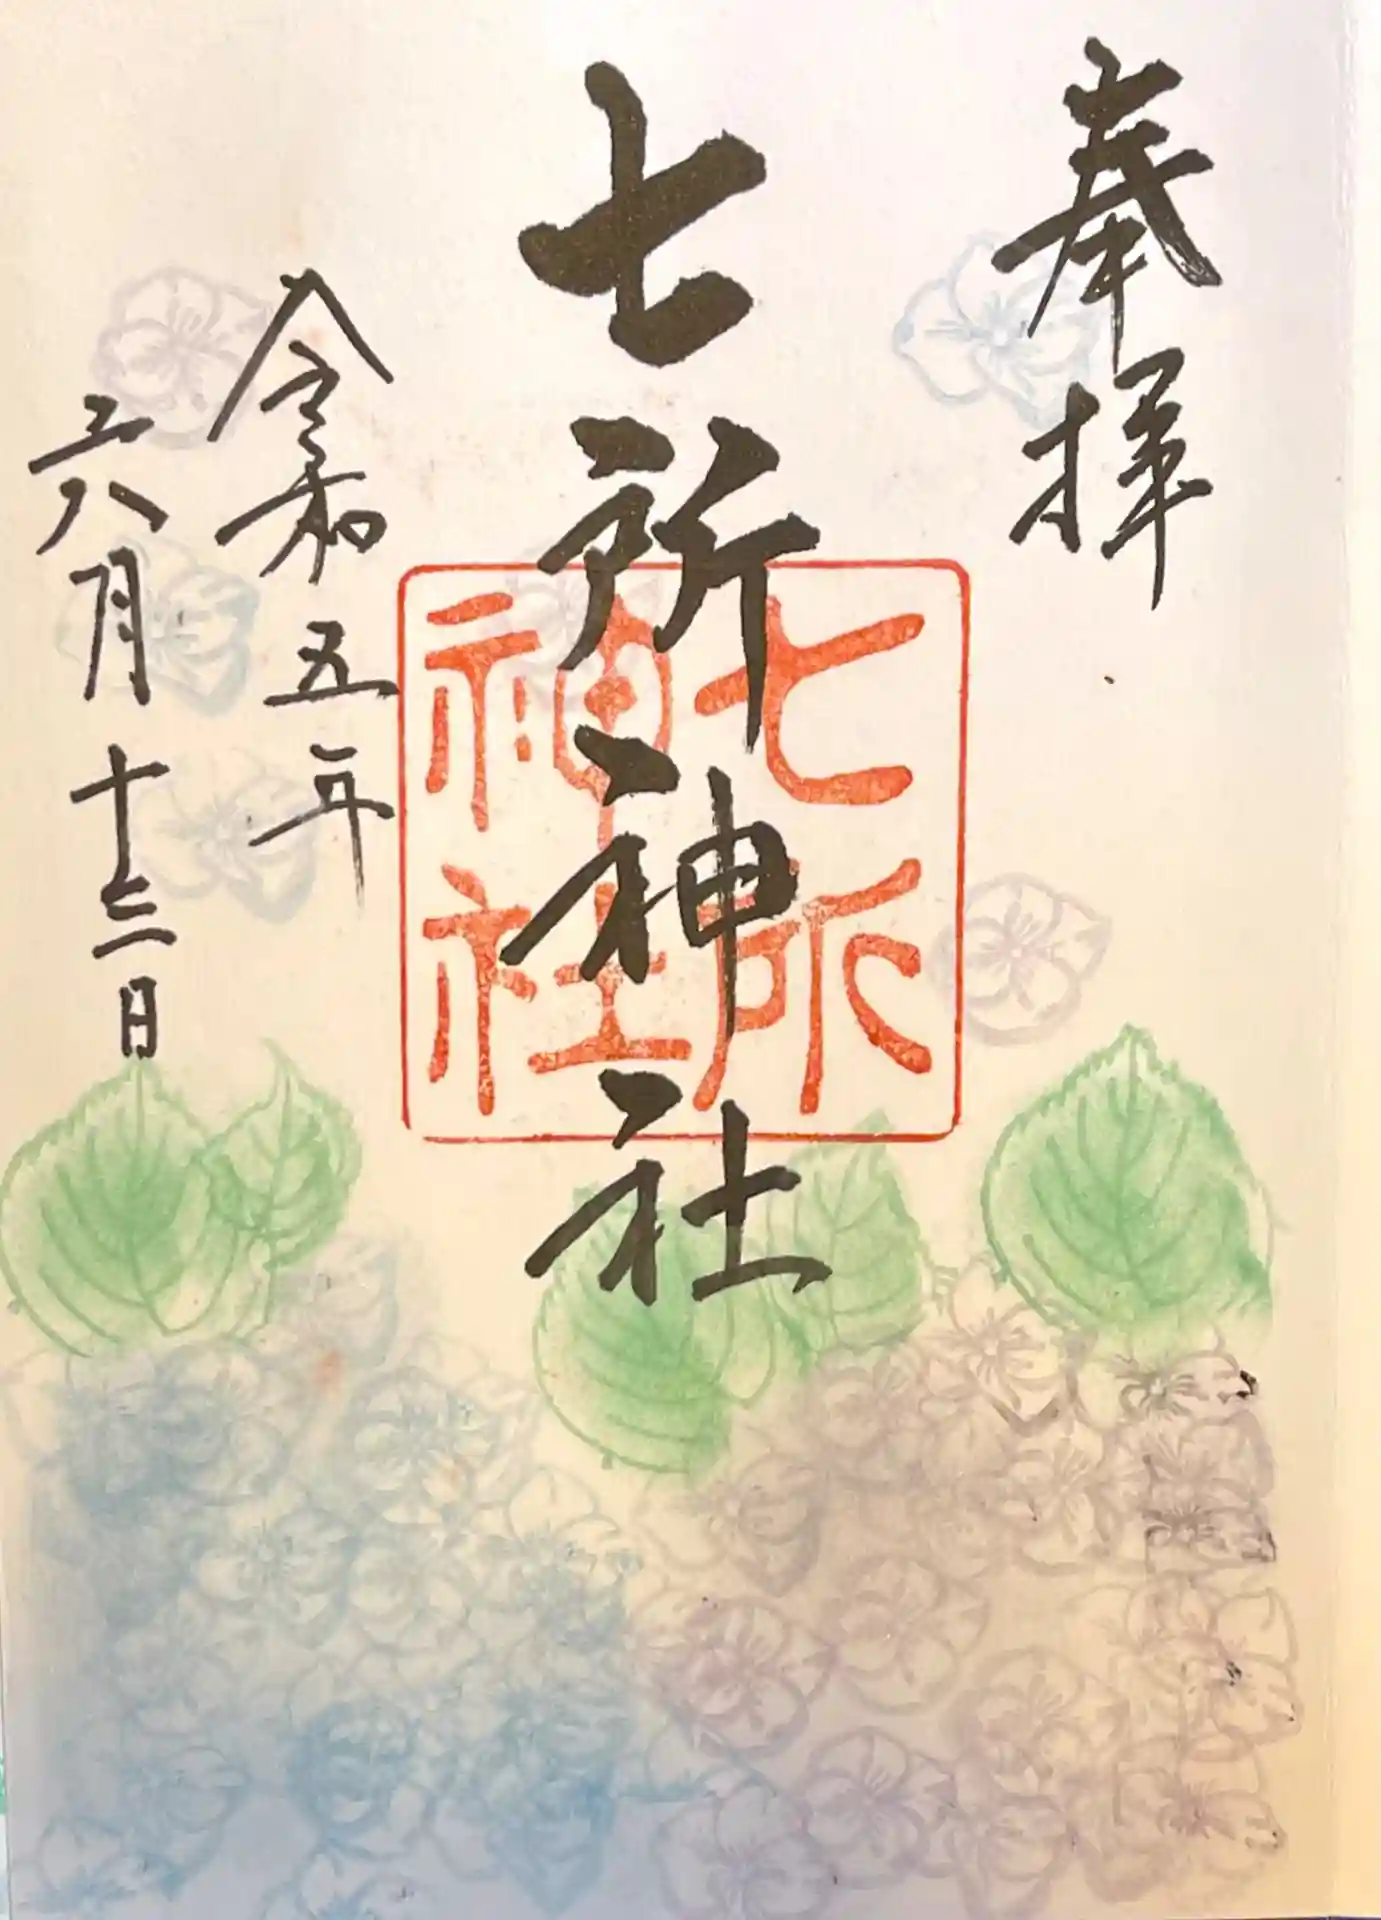 奉拝
七所神社
七所神社
令和五年
六月十三日